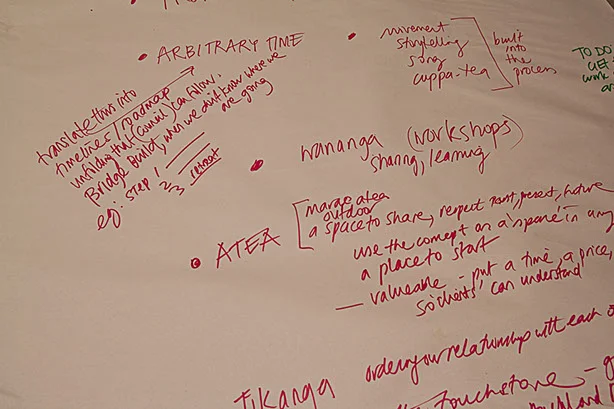 • ARBITRARY TIME
translate this into
timelines/roadmap
unfolding that (Council) can follow.
Bridge build, when we don't know where we
are going
eg: step 1
2
3 retreat
• movement
storytelling
song
cuppa-tea
built
into
the
process
TO DO
• wananga (workshops)
sharing, learning
• ATEA
marae atea
outdoor
a space to share, respect past, present, future
use the concept as a 'space' in any
a place to start
— valueable - put a time, a price,
so 'clients' can understand
Tikanga
ordering our relationship with each
touchstone -